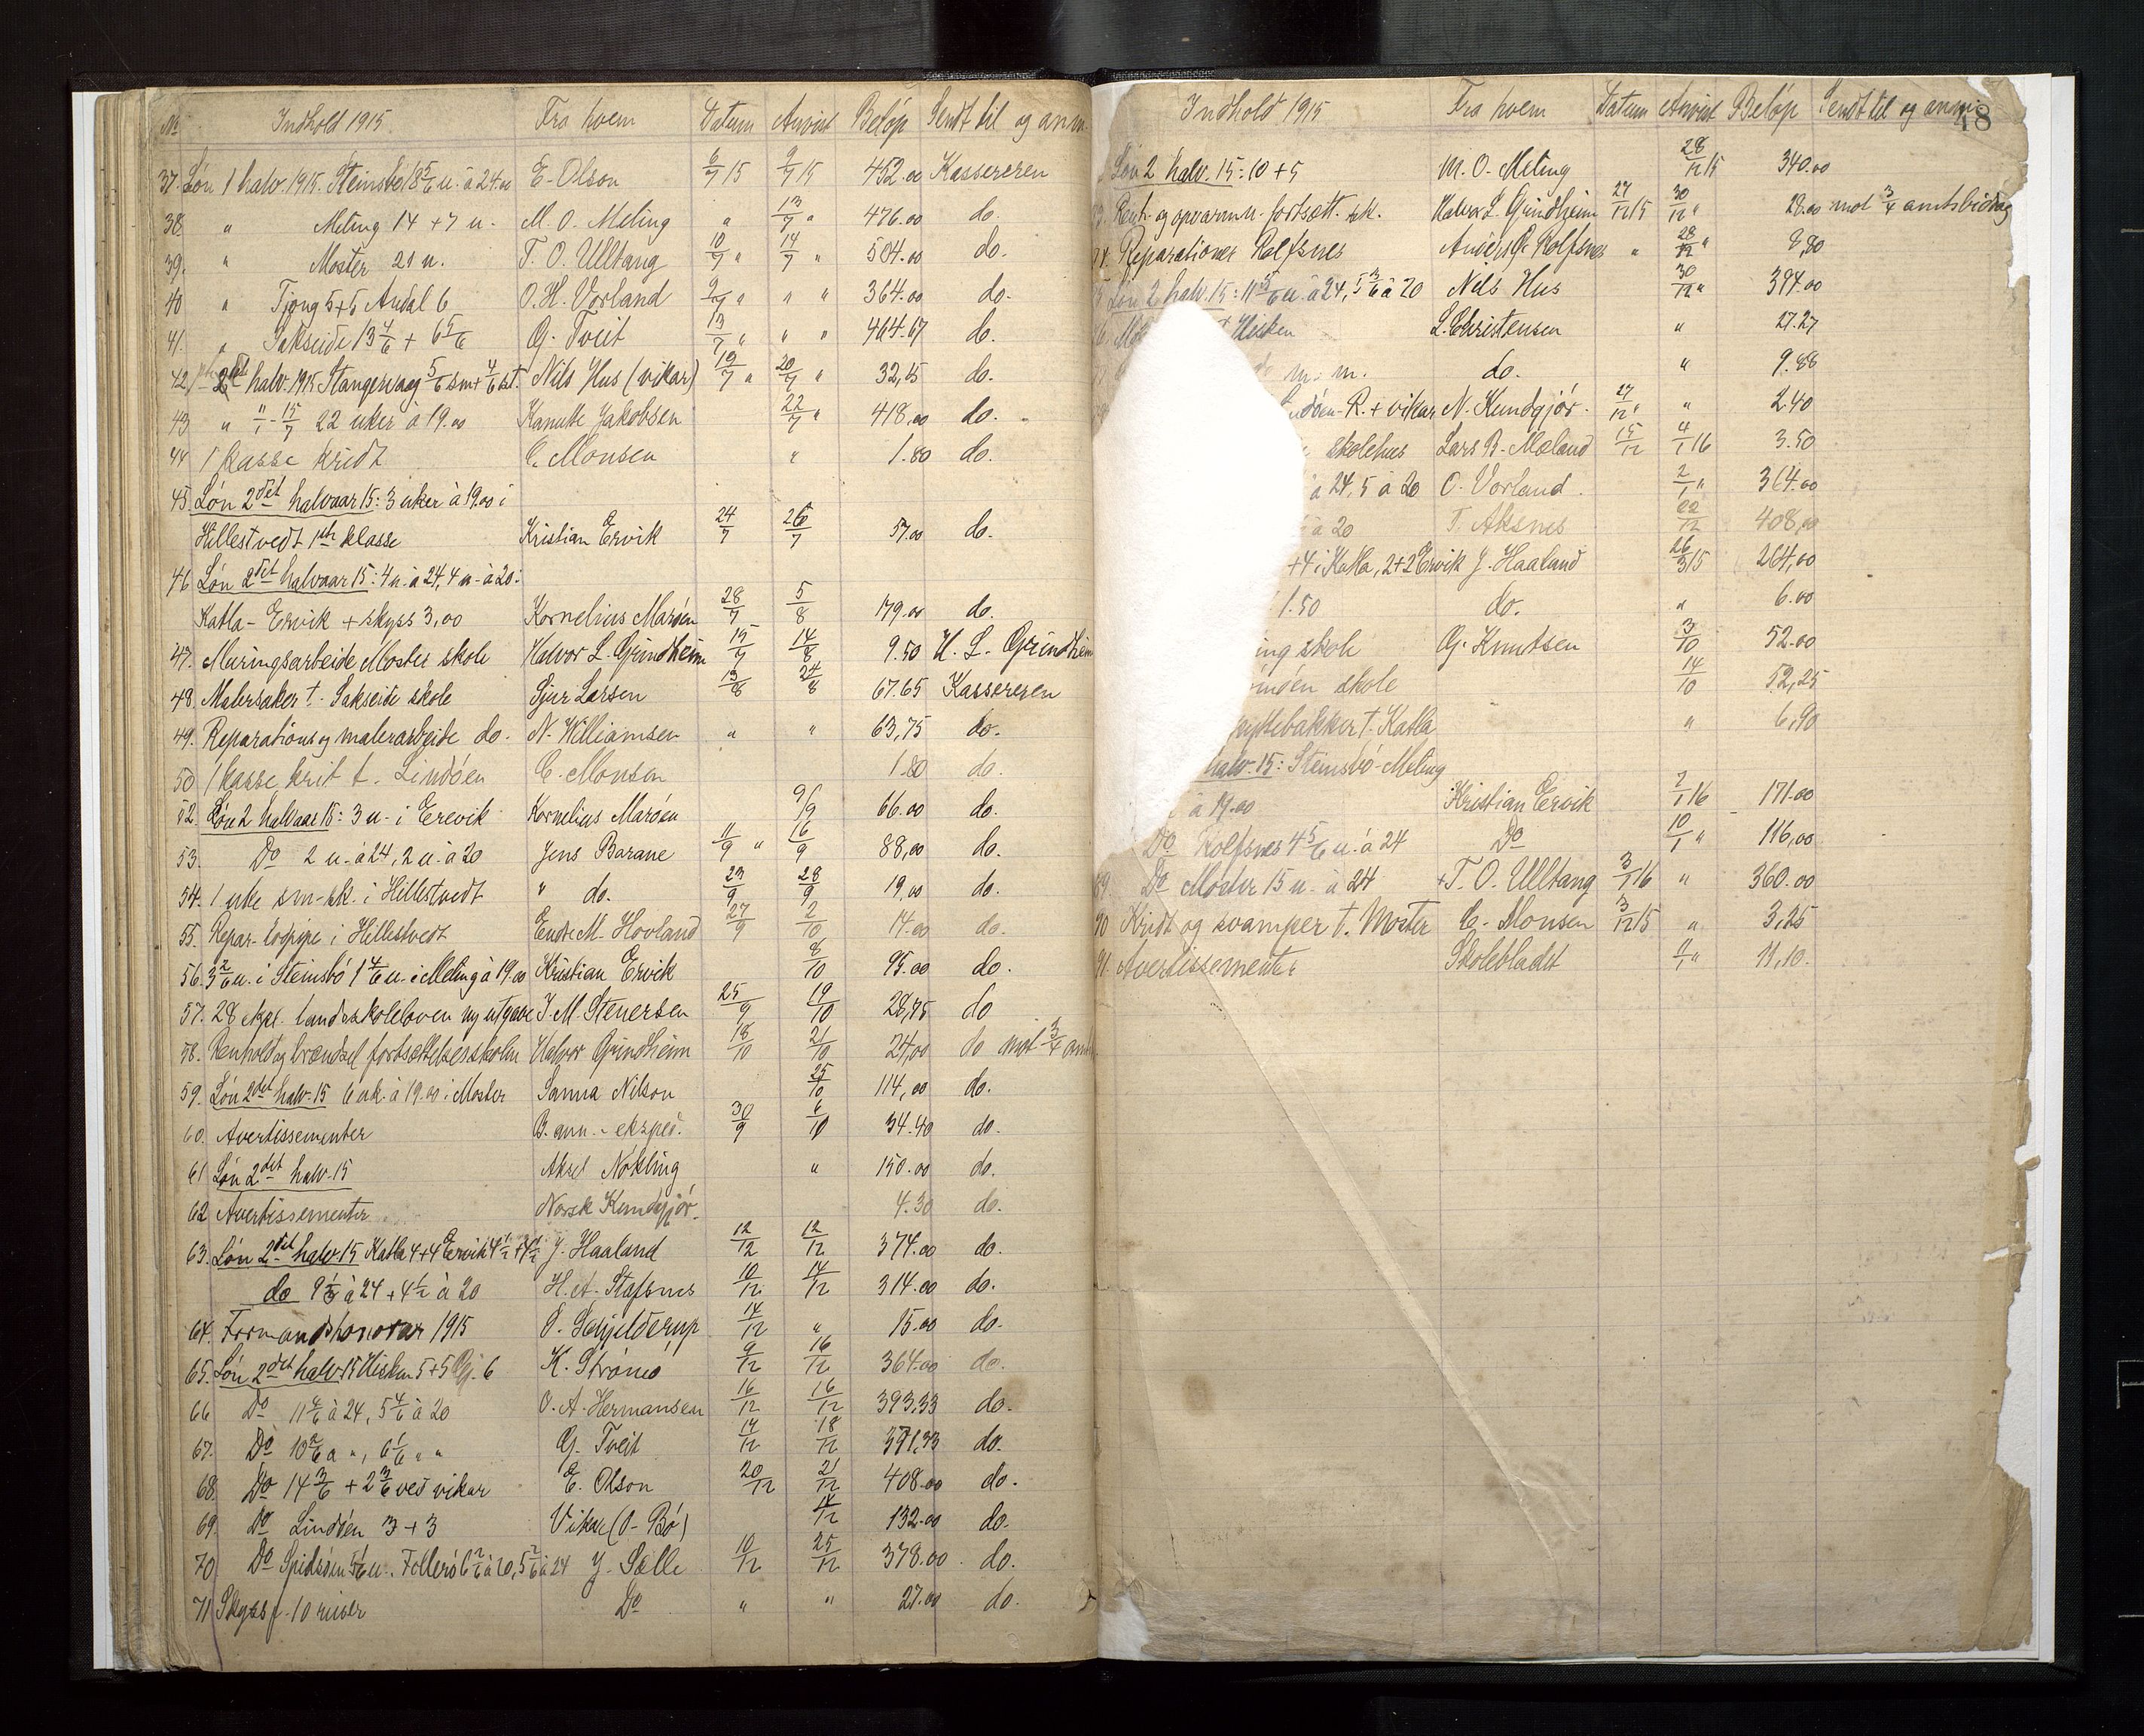 No Indhold 1915. Fra hvem Datum Anvist Beløp Sendt til og anm.
37. Løn 1 halv. 1915. Steinsbö 18 5/6 u. à 24.00 E. Olson 6/7 15 9/7 15 452.00 Kassereren
38 " Meling 14 + 7 u. M. O. Meling " 13/7 " 476.00 do.
39. " Moster 21 u. T. O. Ulltang 10/7 " 14/7 " 504.00 do.
40 " Tjong 5+5 Andal 6 O. H. Vorland 9/7 " " " 364.00 do.
41. " Sakseide 13 4/6 + 6 5/6 G. Tveit 13/7 " " " 464.67 do.
42. 2det halv. 1915 Stangervaag 5/6 sm + 4/6 st. Nils Hus (vikar) 19/7 " 20/7 " 32,15 do.
43 " " 1/1 - 15/7 22 uker à 19.00 Kanutte Jakobsen 22/7 " 418,00 do.
44 1 kasse kridt C. Monsen " 1.80 do.
45. Løn 2det halvaar 15: 3 uker à 19.00 i
Hillestvedt 1ste klasse Kristian Ervik 24/7 26/7 57.00 do.
46 Løn 2det halvaar 15: 4 u. à 24, 4 u. à 20:
Katla - Ervik + skyss 3,00 Kornelius Marøen 28/7 5/8 179.00 do.
47. Muringsarbeide Moster skole Halvor L. Grindheim 15/7 14/8 9.50 H. L. Grindheim
48. Malersaker t. Sakseide skole Sjur Larsen 13/8 24/8 67.65 Kassereren
49. Reparations og malerarbeide do. N. Williamsen " " 63,75 do.
50 1 kasse krit t. Lindøen C. Monsen 1.80 do.
52. Løn 2 halvaar 15: 3 u. i Erevik Kornelius Marøen 9/9 66.00 do.
53. Do 2 u. à 24, 2 u. à 20 Jens Barane 11/9 " 16/9 88,00 do.
54. 1 uke sm-sk. i Hillestvedt " do. 23/9 28/9 19,00 do.
55. Repar. lospipe i Hillestvedt Endre M. Hovland 27/9 2/10 14.00 do.
56. 3 2/6 u. i Steinsbö 1 4/6 u. i Meling à 19.00 Kristian Ervik 8/10 95.00 do.
57. 28 ekpl. landsskoleloven ny utgave J. M. Stenersen 25/9 19/10 28,75 do
58. Renhold og brændsel fortsættelsesskolen Halvor Grindheim 18/10 21/10 24,00 do mot 3/4 am
59. Løn 2det halv. 15 6 uk. à 19.00 i Moster Sanna Nilson 25/10 114,00 do.
60. Avertissementer B. ann.-ekspd. 30/9 6/10 34.40 do.
61 Løn 2det halv. 15 Aksel Nøkling " 150.00 do.
62 Avertissementer Norsk Kundgjør. 4.30 do.
63. Løn 2det halv. 15 Katla 4+4 Ervik 4 1/2 + 4 1/2 J. Haaland 12/12 12/12 374.00 do.
do 9 1/3 à 24 + 4 1/2 à 20 H. A. Stafsnes 10/12 14/12 314.00 do.
64. Formandshonorar 1915 O. Schjelderup 14/12 " 15.00 do.
65. Løn 2det halv. 15 Hisken 5+5 Gj. 6 K. Strømø 9/12 16/12 364.00 do.
66 Do 11 4/6 à 24, 5 4/6 à 20 O. A. Hermansen 16/12 16/12 393.33 do.
67. Do 10 2/6 a ", 6 1/6 " " G. Tveit 14/12 18/12 371,33 do.
68. Do 14 3/6 + 2 3/6 ved vikar E. Olson 20/12 21/12 408.00 do.
69. Do Lindøen 3 + 3 Vikar (O. Bö) 132.00 do.
70 Do Spidsöen 5 1/6 u. Follerö 6 2/6 à 20, 5 2/6 à 24 J. Sælle 10/12 25/12 378.00 do.
71 Skyss f. 10 reiser Do " " 27.00 do.
Indhold 1915 Fra hvem Datum Anvist Beløp Sendt til og anm.
48
Løn 2 halv. 15: 10 + 5 M. O. Meling 28/12 15 340.00
Renh. og opvarmn. fortsætt. sk. Halvor L. Grindheim 27/12 15 30/12 " 28.00 mot 3/4 amtsbidrag
Reparationer Rolfsnes Anders G. Rolfsnes " 28/12 " 9,80
Løn 2 halv. 15: 11 5/6 u. à 24, 5 3/6 à 20 Nils Hus 30/12 " 394.00
Hisken L. Christensen " 27.27
do m. m. do. " 9.88
Lindøen - R. + vikar N. Kundgjør. 27/12 " " 2.40
skolehus Lars B. Mæland 15/12 4/1 16 3.50
à 24, 5 à 20 O. Vorland 2/1 " 364.00
à 20 T. Aksnes 22/12 408,00
+4 i Katla, 2+2 Ervik J. Haaland 26/3 15 264,00
1.50 do. " 6.00
ing skole G. Knutsen 3/10 52.00
inden skole 14/10 52,25
spyttebakker t. Katla " 6,90
halv. 15: Steinsbö - Meling
à 19.00 Kristian Ervik 7/1 16 171.00
Do Rolfsnes 4 5/6 u. à 24 Do 10/1 " 116,00
89. Do Moster 15 u. à 24 + T. O. Ulltang 3/1 16 " 360.00
90 Kridt og svamper t. Moster C. Monsen 3/12 15 " 3,25
91. Avertissementer Skolebladet 11/1 " 11,10.